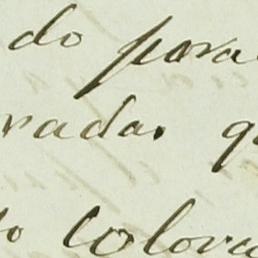 do para
rada. q
to colora